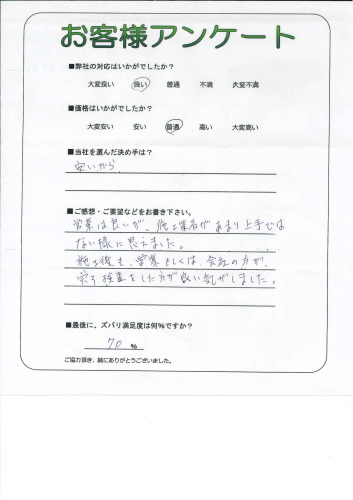 お客様アンケート
■弊社の対応はいかがでしたか？
大変良い 良い 普通 不満 大変不満
■価格はいかがでしたか？
大変安い 安い 普通 高い 大変高い
■当社を選んだ決め手は？
安いから
■ご感想・ご要望などをお書き下さい。
営業は良いが、施工業者があまり上手では
ない様に思えました。
施工後も、営業もしくは、会社の方が、
検査をした方が良い気がしました。
■最後に、ズバリ満足度は何％ですか？
70 ％
ご協力頂き、誠にありがとうございました。